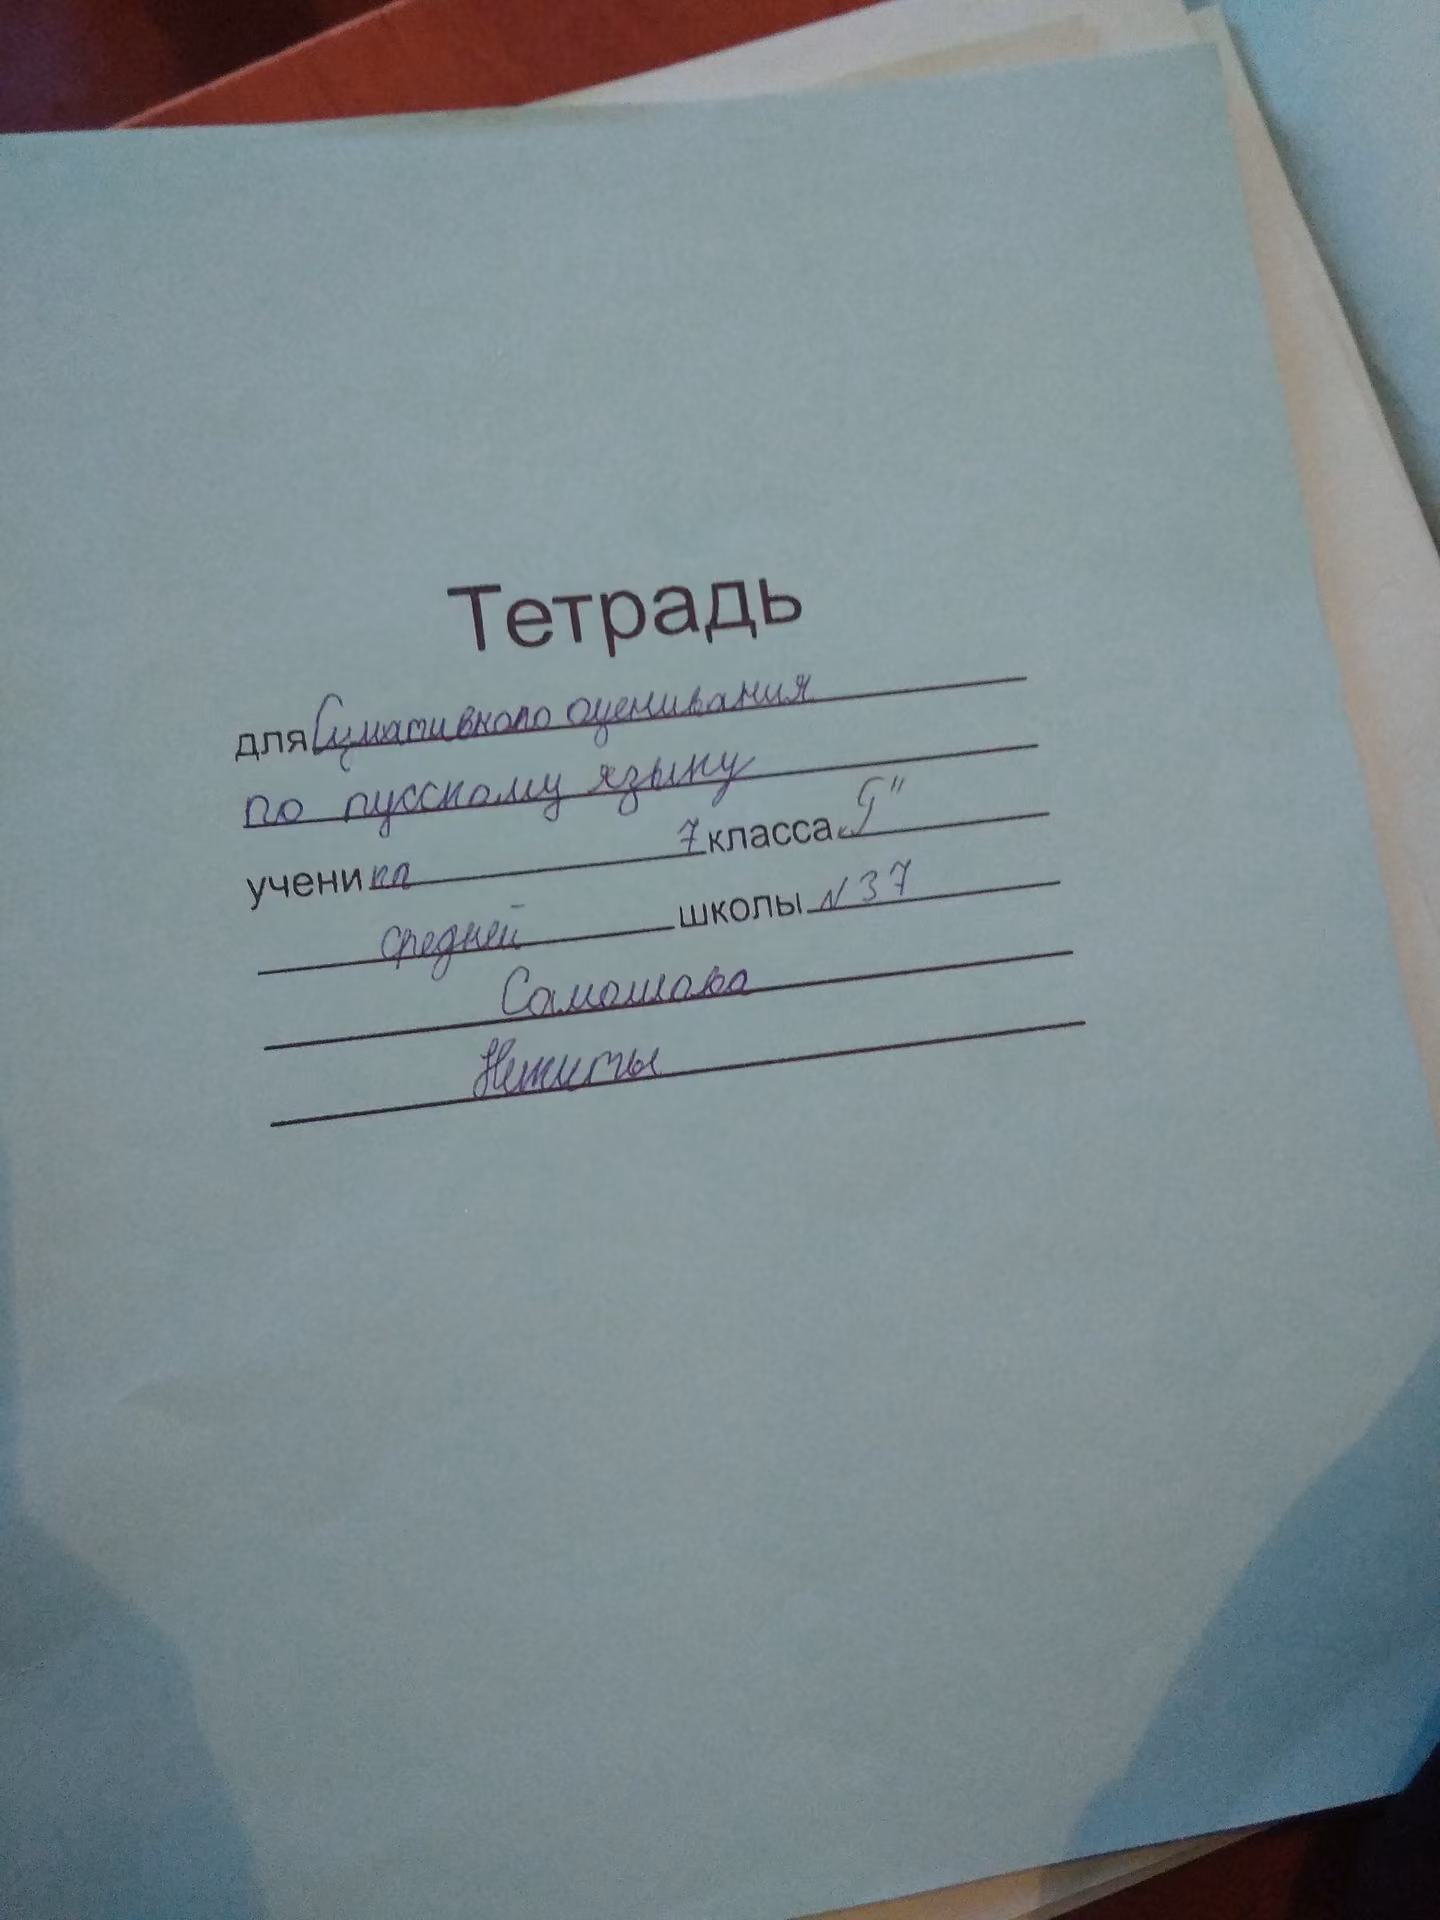 Тетрадь
для Сумативного оценивания
по русскому языку
ученика 7 класса "
средней школы N 37
Никиты